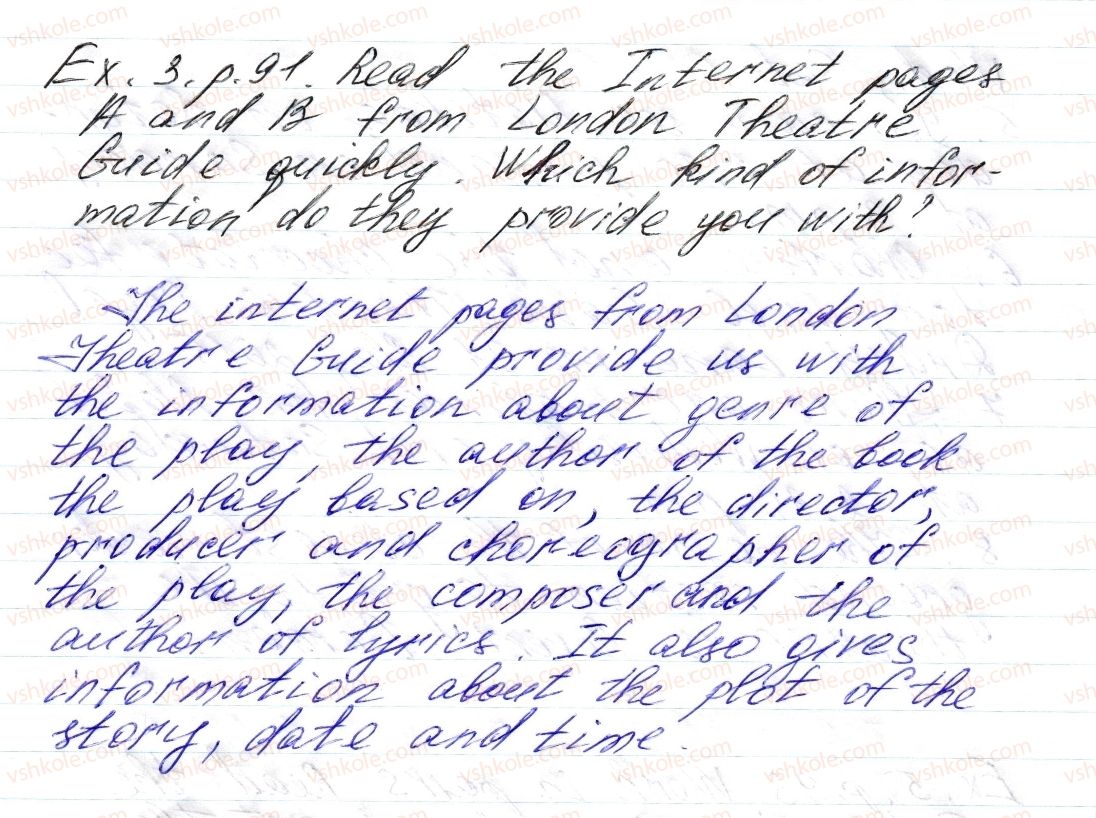 Ex. 3. p. 91. Read the Internet pages
A and B from London Theatre
Guide quickly. Which kind of infor-
mation do they provide you with?
The internet pages from London
Theatre Guide provide us with
the information about genre of
the play, the author of the book
the play based on, the director,
producer and choreographer of
the play, the composer and the
author of lyrics. It also gives
information about the plot of the
story, date and time.
vshkole.com